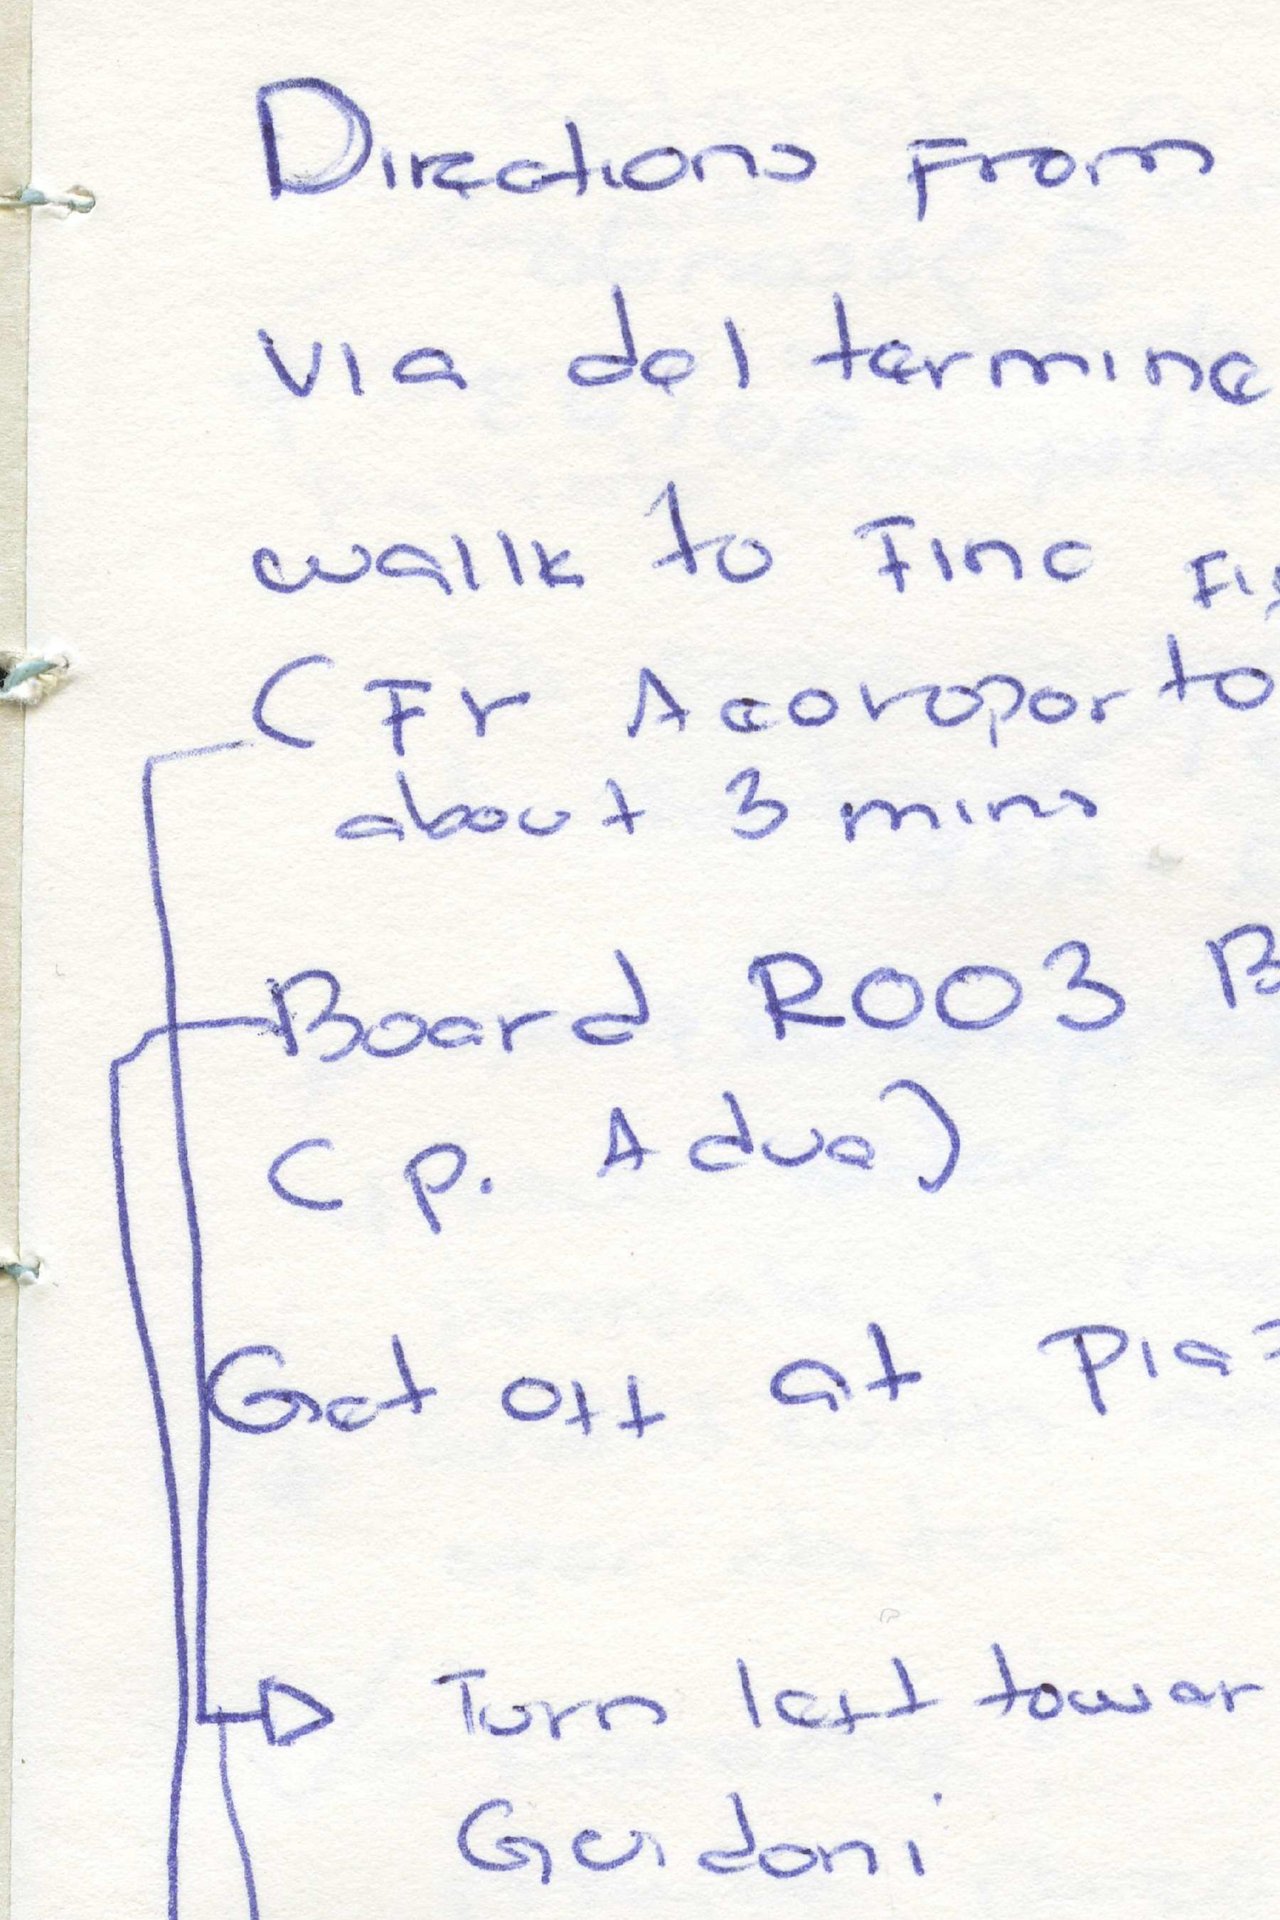 Directions From
Via del termine
walk to Fine
(Fr Aeroporto
about 3 mins
Board R003 B
(P. Adua)
Get off at Piaz
Turn left towar
Giardoni